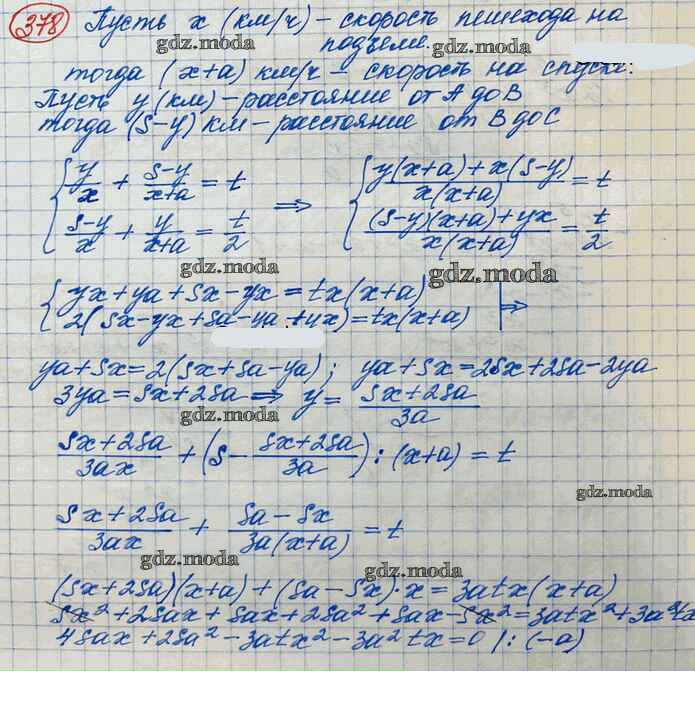 378 Пусть x (км/ч) – скорость пешехода на
gdz.moda подъеме. gdz.moda
тогда (x+a) км/ч – скорость на спуске:
Пусть y (км) – расстояние от А до В
тогда (S–y) км – расстояние от В до С
{ y/x + (S–y)/(x+a) = t ⇒ { (y(x+a) + x(S–y))/(x(x+a)) = t
{ (S–y)/x + y/(x+a) = t/2 { ((S–y)(x+a) + yx)/(x(x+a)) = t/2
gdz.moda gdz.moda
{ yx + ya + Sx – yx = tx(x+a)
{ 2(Sx – yx + Sa – ya + yx) = tx(x+a) ⇒
ya + Sx = 2(Sx + Sa – ya); ya + Sx = 2Sx + 2Sa – 2ya
3ya = Sx + 2Sa ⇒ y = (Sx + 2Sa)/3a
gdz.moda gdz.moda
(Sx + 2Sa)/3ax + (S – (Sx + 2Sa)/3a) : (x+a) = t
gdz.moda
(Sx + 2Sa)/3ax + (Sa – Sx)/(3a(x+a)) = t
gdz.moda gdz.moda
(Sx + 2Sa)(x+a) + (Sa – Sx)·x = 3atx(x+a)
Sx² + 2Sax + Sax + 2Sa² + Sax – Sx² = 3atx² + 3a²tx
4Sax + 2Sa² – 3atx² – 3a²tx = 0 /: (–a)
gdz.moda gdz.moda